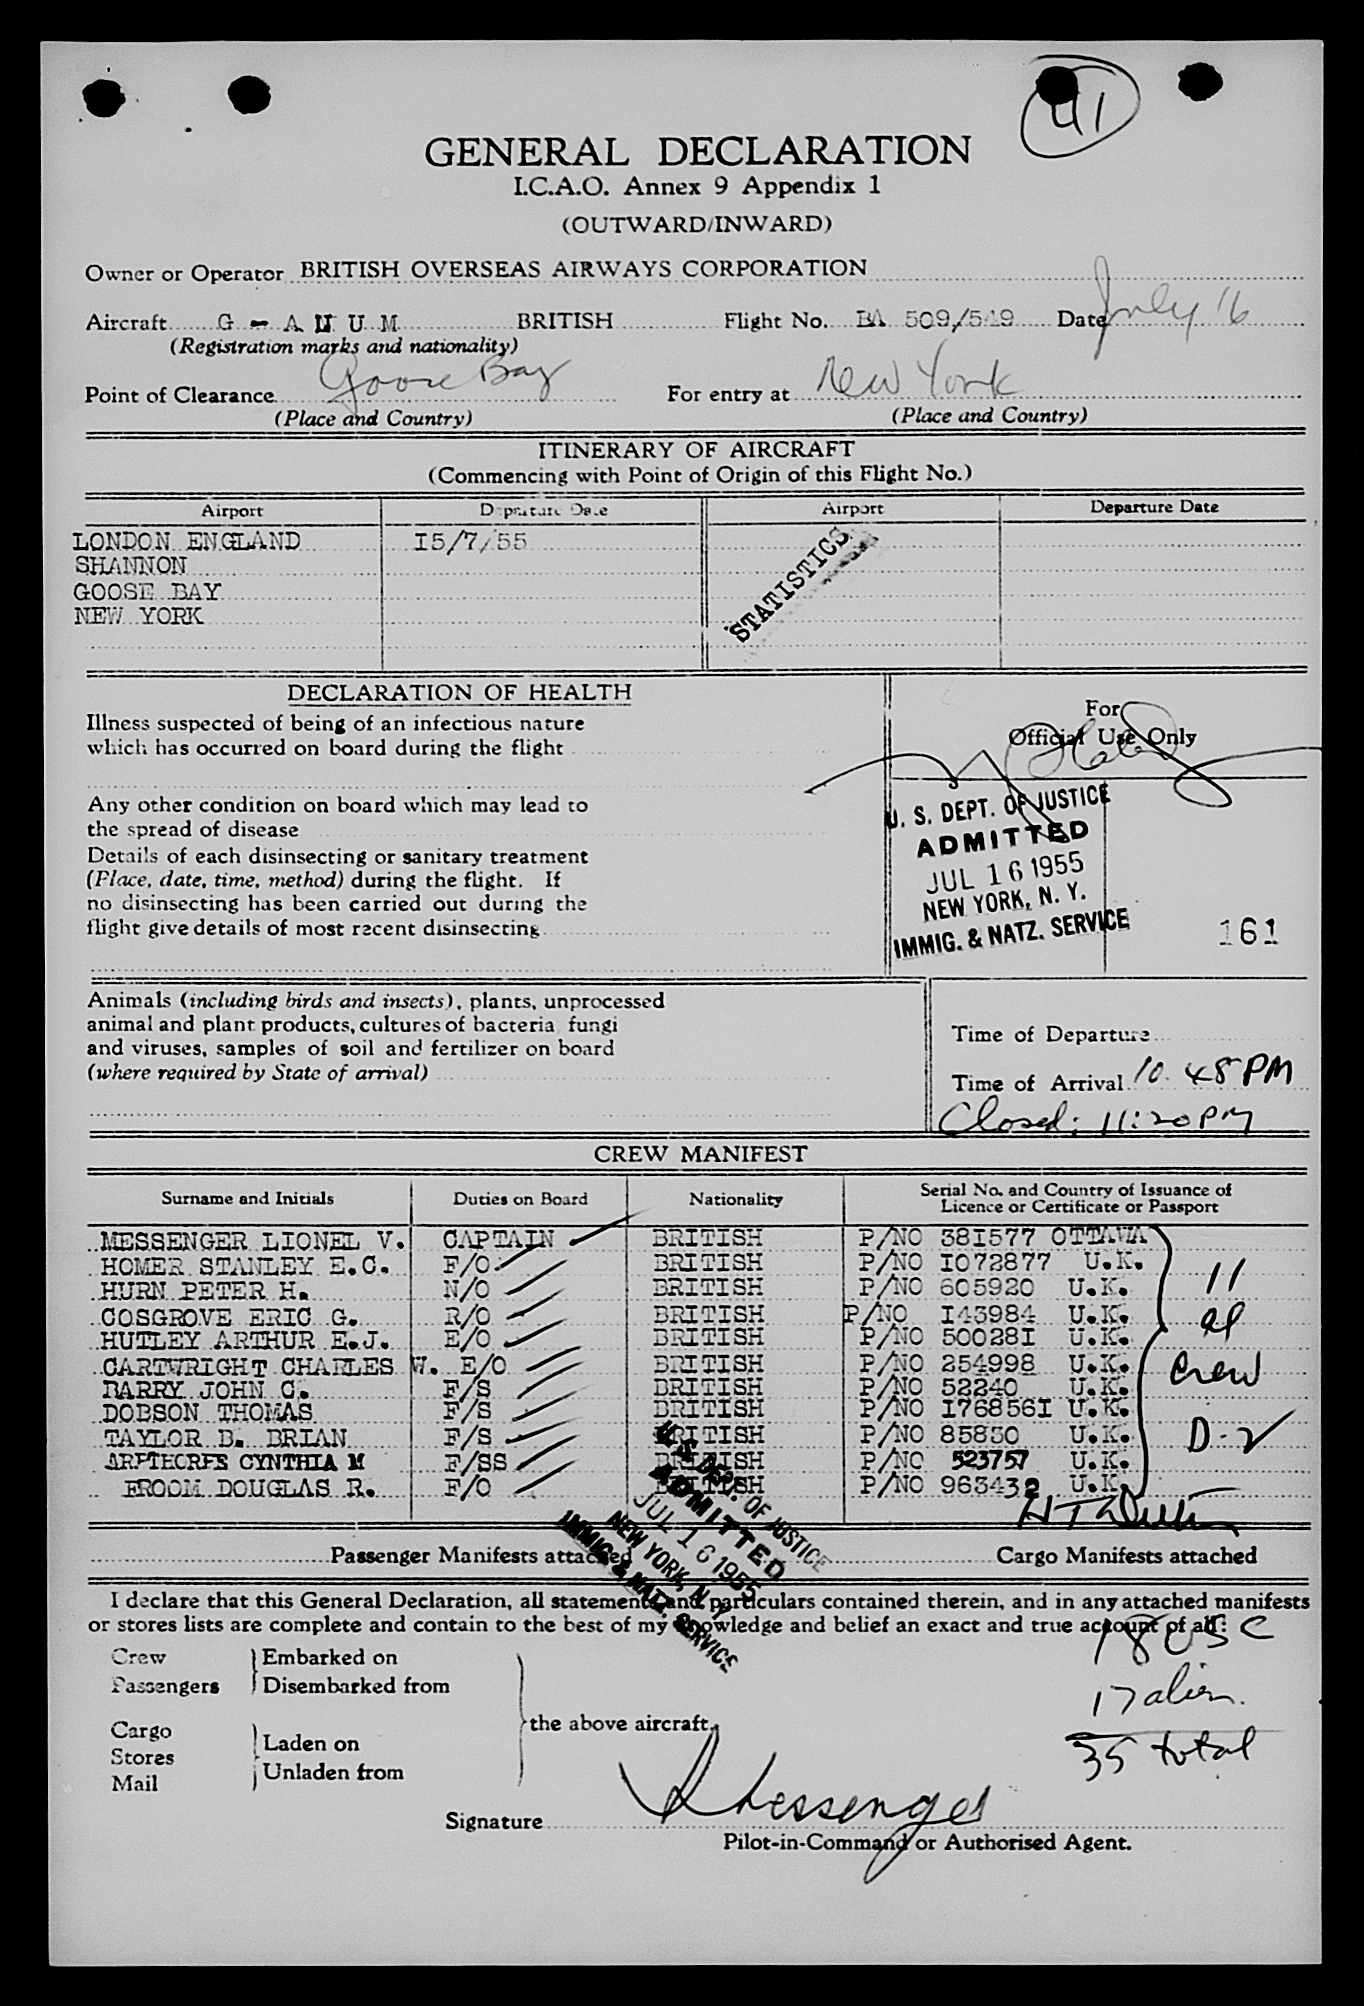 41
GENERAL DECLARATION
I.C.A.O. Annex 9 Appendix 1
(OUTWARD/INWARD)
Owner or Operator BRITISH OVERSEAS AIRWAYS CORPORATION
Aircraft G - A N U M BRITISH Flight No. BA 509/549 Date July 16
(Registration marks and nationality)
Point of Clearance Goose Bay For entry at New York
(Place and Country) (Place and Country)
ITINERARY OF AIRCRAFT
(Commencing with Point of Origin of this Flight No.)
Airport Departure Date Airport Departure Date
LONDON ENGLAND I5/7/55
SHANNON
GOOSE BAY
NEW YORK
STATISTICS
DECLARATION OF HEALTH
Illness suspected of being of an infectious nature
which has occurred on board during the flight
Any other condition on board which may lead to
the spread of disease
Details of each disinsecting or sanitary treatment
(Place, date, time, method) during the flight. If
no disinsecting has been carried out during the
flight give details of most recent disinsecting
For
Official Use Only
U. S. DEPT. OF JUSTICE
ADMITTED
JUL 16 1955
NEW YORK, N. Y.
IMMIG. & NATZ. SERVICE
161
Animals (including birds and insects), plants, unprocessed
animal and plant products, cultures of bacteria fungi
and viruses, samples of soil and fertilizer on board
(where required by State of arrival)
Time of Departure
Time of Arrival 10.48 PM
Closed: 11:20 PM
CREW MANIFEST
Surname and Initials Duties on Board Nationality Serial No. and Country of Issuance of
Licence or Certificate or Passport
MESSENGER LIONEL V. CAPTAIN BRITISH P/NO 381577 OTTAWA
HOMER STANLEY E.C. F/O BRITISH P/NO I072877 U.K.
HURN PETER H. N/O BRITISH P/NO 605920 U.K.
COSGROVE ERIC G. R/O BRITISH P/NO I43984 U.K.
HUTLEY ARTHUR E.J. E/O BRITISH P/NO 50028I U.K.
CARTWRIGHT CHARLES W. E/O BRITISH P/NO 254998 U.K.
BARRY JOHN C. F/S BRITISH P/NO 52240 U.K.
DOBSON THOMAS F/S BRITISH P/NO I76856I U.K.
TAYLOR B. BRIAN F/S BRITISH P/NO 85850 U.K.
CYNTHIA M F/SS BRITISH P/NO 523757 U.K.
FROOM DOUGLAS R. F/O BRITISH P/NO 963432 U.K.
11
al
Crew
D-2
U. S. DEPT. OF JUSTICE
ADMITTED
JUL 16 1955
NEW YORK, N. Y.
IMMIG. & NATZ. SERVICE
Passenger Manifests attached Cargo Manifests attached
I declare that this General Declaration, all statements and particulars contained therein, and in any attached manifests
or stores lists are complete and contain to the best of my knowledge and belief an exact and true account of all:
Crew Embarked on
Passengers Disembarked from
Cargo
Stores Laden on
Mail Unladen from
the above aircraft.
18 USC
17 alien
35 total
Signature Messenger
Pilot-in-Command or Authorised Agent.